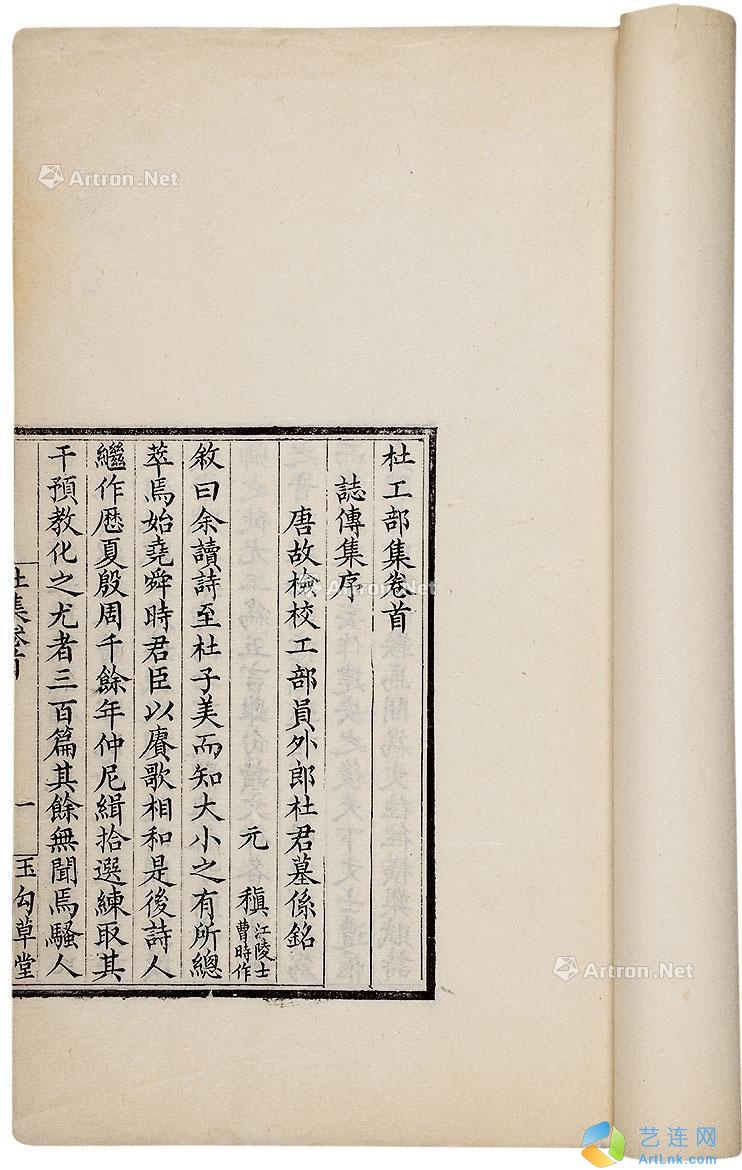 杜工部集卷首
誌傳集序
唐故檢校工部員外郎杜君墓係銘
元稹江陵士曹時作
敘曰余讀詩至杜子美而知大小之有所總
萃焉始堯舜時君臣以賡歌相和是後詩人
繼作歷夏殷周千餘年仲尼緝拾選練取其
干預教化之尤者三百篇其餘無聞焉騷人
杜集卷首
一
玉勾草堂
Artron.Net
Artron.Net
Artron.Net
艺连网
ArtLnk.com